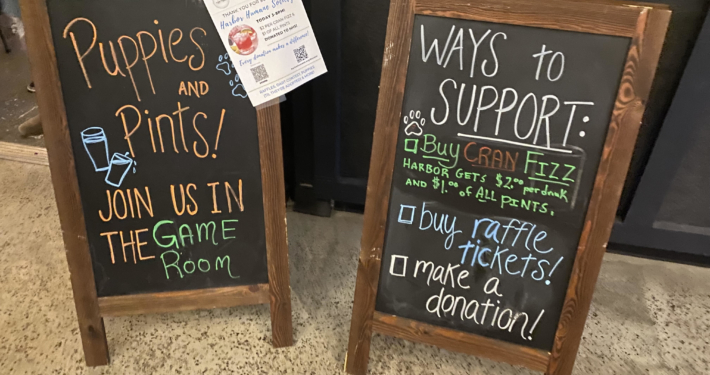 Puppies
AND
Pints!
JOIN US IN
THE GAME
ROOM
THANK YOU FOR
Harbor Humane Society
TODAY
DONATED TO HHS!
Every donation makes a difference!
WAYS TO
SUPPORT:
Buy CRAN FIZZ
HARBOR GETS $2.00 per drink
AND $1.00 of ALL PINTS.
buy raffle
tickets!
make a
donation!